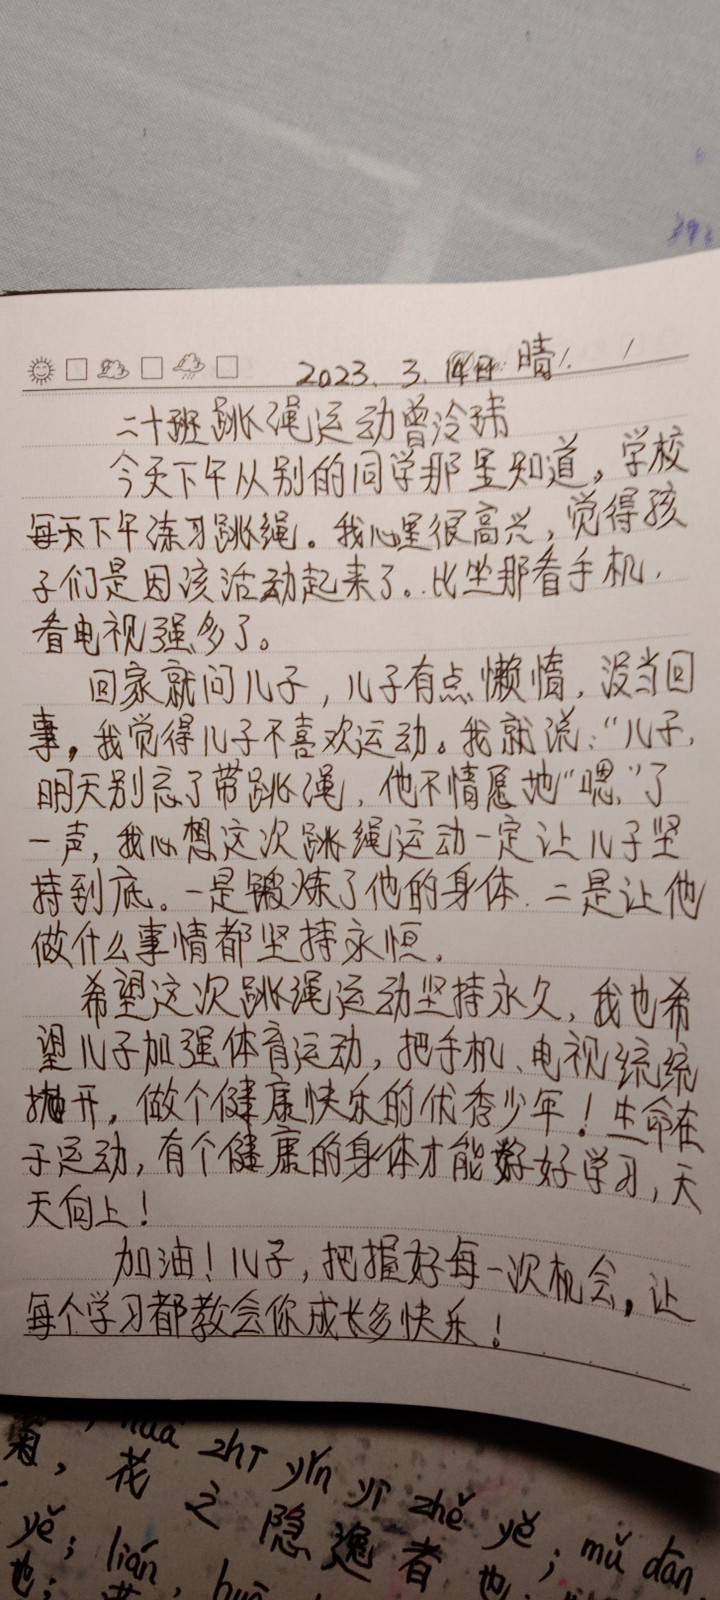 2023.3.14日 晴
二十班跳绳运动曾冷玮
今天下午从别的同学那里知道，学校
每天下午练习跳绳。我心里很高兴，觉得孩
子们是因该活动起来了。比坐那看手机，
看电视强多了。
回家就问儿子，儿子有点懒惰，没当回
事，我觉得儿子不喜欢运动。我就说：“儿子，
明天别忘了带跳绳，他不情愿地“嗯”了
一声，我心想这次跳绳运动一定让儿子坚
持到底。一是锻炼了他的身体．二是让他
做什么事情都坚持永恒．
希望这次跳绳运动坚持永久，我也希
望儿子加强体育运动，把手机、电视统统
抛开，做个健康快乐的优秀少年！生命在
于运动，有个健康的身体才能好好学习，天
天向上！
加油！儿子，把握好每一次机会，让
每个学习都教会你成长多快乐！
huā zhī yǐn yì zhě yě；mǔ dān
菊，花之隐逸者也
yě；lián，huā
也；